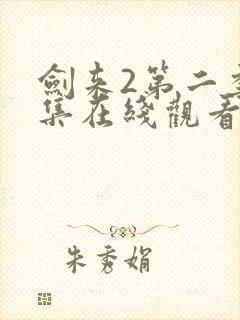 劍來2第二季
集在綫觀看
朱秀娟